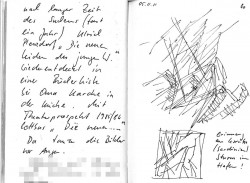 nach langer Zeit
des Suchens (fast
ein Jahr) Ulrich
Plenzdorf „Die neuen
Leiden des jungen W."
wiederentdeckt in
einer Bücherkiste
bei Oma
in der Küche. Mit
Theaterprospekt 1985/86
„Die neuen..."
Da tanzen die Bilder
vor Augen.
05.11.11
Erinnerung
an
Sardinien!
Sturm im
Hafen!